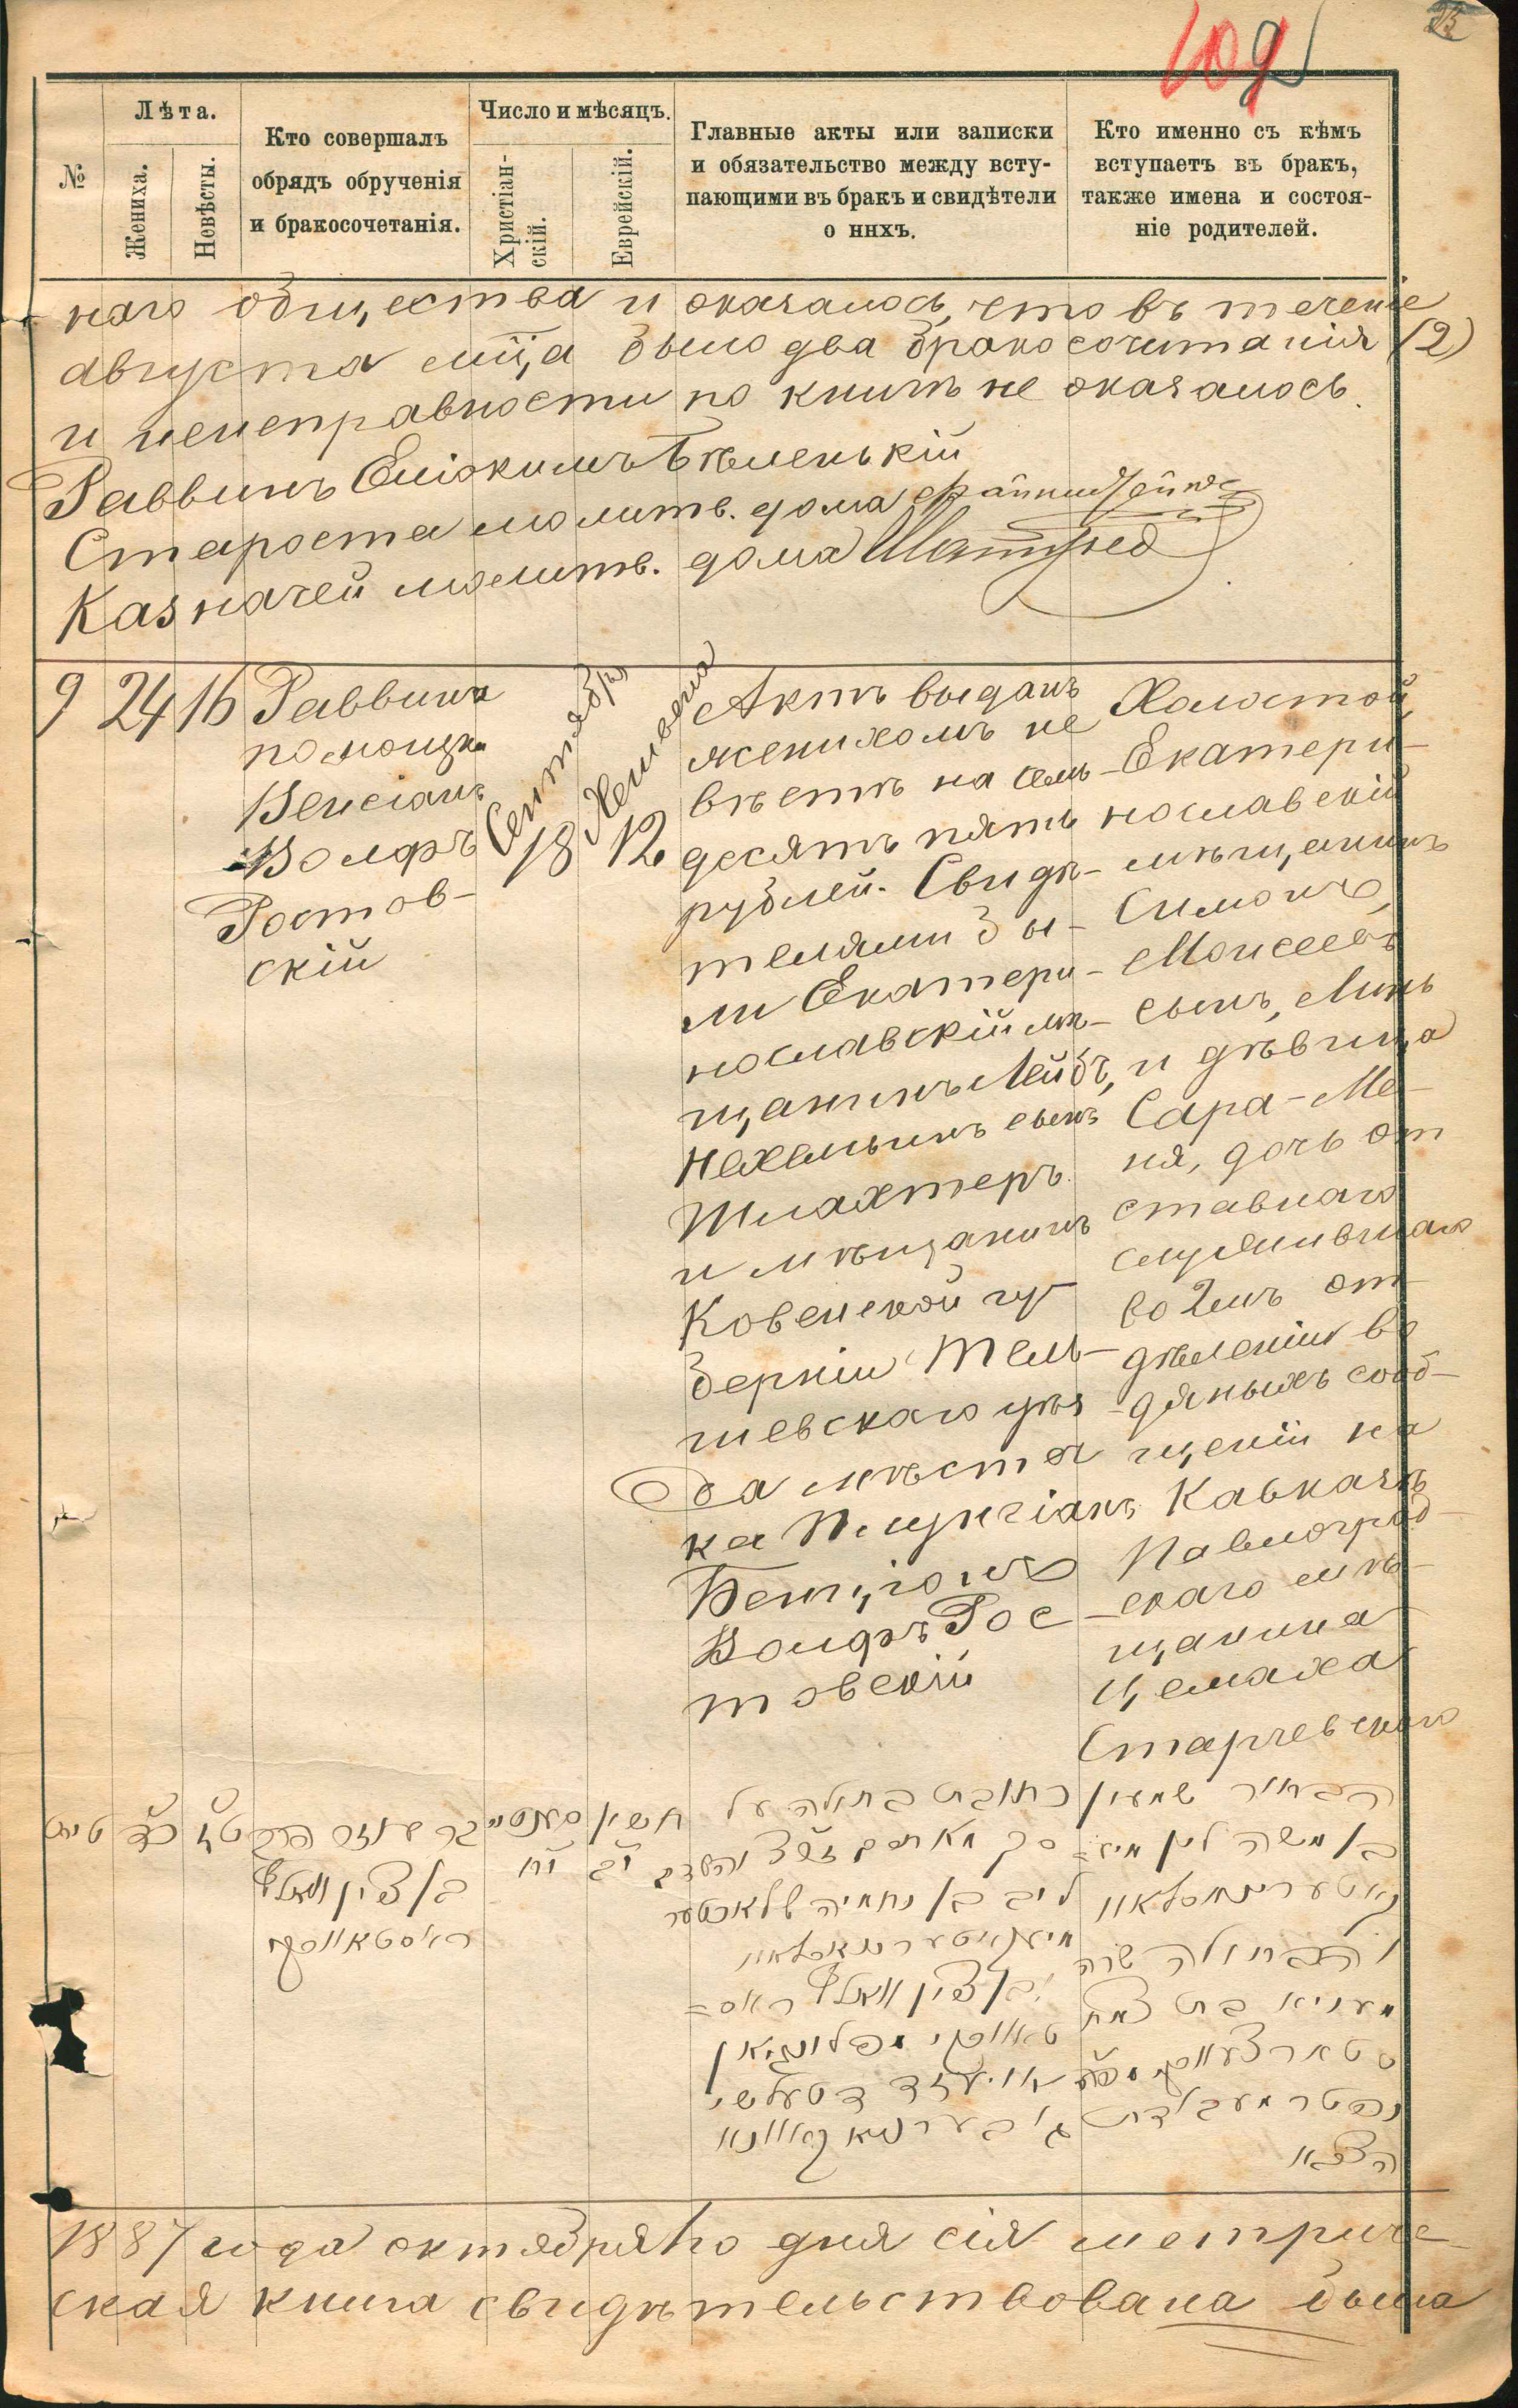 109
№
Лѣта.
Жениха.
Невѣсты.
Кто совершалъ
обрядъ обрученія
и бракосочетанія.
Число и мѣсяцъ.
Христіан-
скій.
Еврейскій.
Главные акты или записки
и обязательство между всту-
пающими въ бракъ и свидѣтели
о нихъ.
Кто именно съ кѣмъ
вступаетъ въ бракъ,
также имена и состоя-
ніе родителей.
наго общества и оказалось, что въ теченіе
августа мѣ͠ца было два бракосочитанія (2)
и неисправности по книгѣ не оказалось.
Раввинъ Еліокимъ Бѣленькій
Староста молитв. дома
Казначей молитв. дома
9
24
16
Раввина
помощн.
Бенсіанъ
Волфъ
Ростов-
скій
Сентября
18
Хешвена
12
Актъ выданъ
женихомъ не
вѣстѣ на семь
десятъ пять
рублей. Свидѣ-
телями бы-
ли Екатери-
нославскій мѣ-
щанинъ Лейбъ,
Нехемьинъ сынъ
Шлахтеръ
и мѣщанинъ
Ковенской гу
берніи Тель-
шевскаго уѣз
да мѣстеч
ка Плунгіанъ
Бенціонъ
Волфъ Рос
товскій
Холостой,
Екатери-
нославскій
мѣщанинъ
Симонъ,
Моисеевъ
сынъ, Линъ
и дѣвица
Сара-Ме-
ня, дочь от
ставнаго
служившаго
во 2мъ от-
дѣленіи во
дяныхъ сооб-
щеній на
Кавказѣ
Павлоград-
скаго мѣ-
щанина
Цемаха
Старчевскаго
הבחור שמעון
בן משה לין
והבתולה שרה
מעניא בת צמח
הצבא
כתובת בתולה על
ליב בן נחמיה שלאכטער
בן ציון וואלף ראס=
חשון
יב
יח
בן ציון וואלף
ראסטאווסקי
1887 года октября 10 дня сія метриче-
ская книга свидѣтельствована была